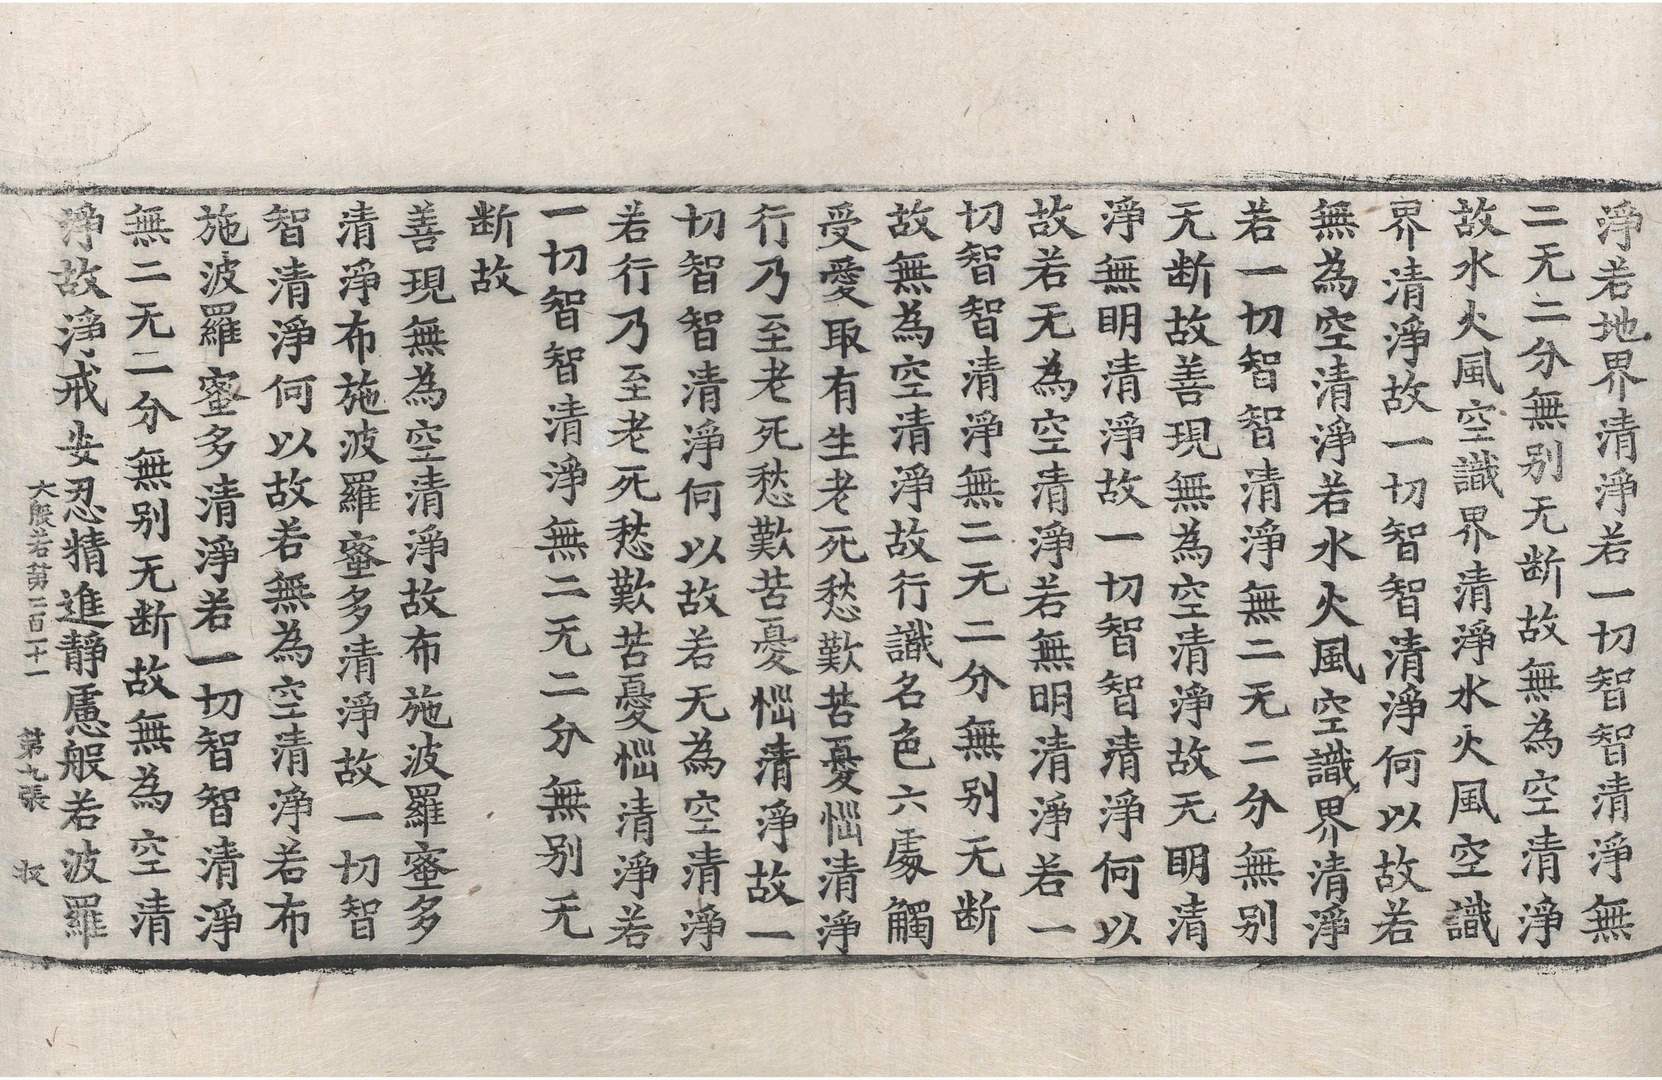 淨若地界清淨若一切智智清淨無
二无二分無別无断故無為空清淨
故水火風空識界清淨水火風空識
界清淨故一切智智清淨何以故若
無為空清淨若水火風空識界清淨
若一切智智清淨無二无二分無別
无断故善現無為空清淨故无明清
淨無明清淨故一切智智清淨何以
故若无為空清淨若無明清淨若一
切智智清淨無二无二分無別无断
故無為空清淨故行識名色六處觸
受愛取有生老死愁歎苦憂惱清淨
行乃至老死愁歎苦憂惱清淨故一
切智智清淨何以故若无為空清淨
若行乃至老死愁歎苦憂惱清淨若
一切智智清淨無二无二分無別无
断故
善現無為空清淨故布施波羅蜜多
清淨布施波羅蜜多清淨故一切智
智清淨何以故若無為空清淨若布
施波羅蜜多清淨若一切智智清淨
無二无二分無別无断故無為空清
淨故淨戒安忍精進靜慮般若波羅
大般若第二百二十一 第九張 收